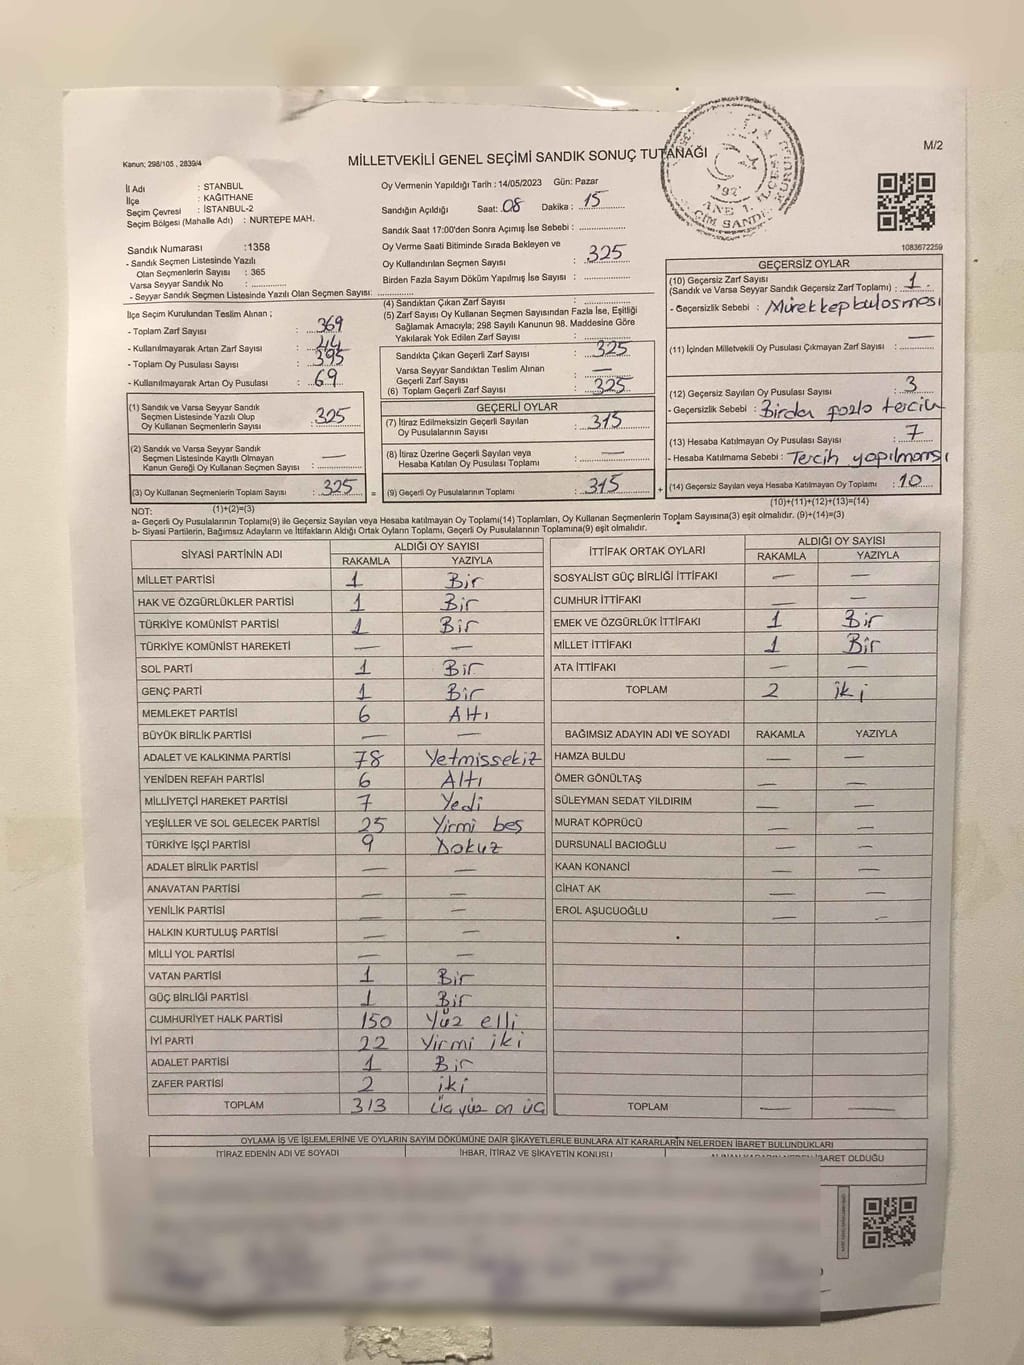 Kanun; 298/105 , 2839/4
MİLLETVEKİLİ GENEL SEÇİMİ SANDIK SONUÇ TUTANAĞI
M/2
İl Adı : İSTANBUL
İlçe : KAĞITHANE
Seçim Çevresi : İSTANBUL-2
Seçim Bölgesi (Mahalle Adı) : NURTEPE MAH.
Sandık Numarası :1358
- Sandık Seçmen Listesinde Yazılı
Olan Seçmenlerin Sayısı : 365
Varsa Seyyar Sandık No : ..............
- Seyyar Sandık Seçmen Listesinde Yazılı Olan Seçmen Sayısı: ..............
Oy Vermenin Yapıldığı Tarih : 14/05/2023 Gün: Pazar
Sandığın Açıldığı Saat: 08 Dakika : 15
Sandık Saat 17:00'den Sonra Açımış İse Sebebi : ..............
Oy Verme Saati Bitiminde Sırada Bekleyen ve
Oy Kullandırılan Seçmen Sayısı : 325
Birden Fazla Sayım Döküm Yapılmış İse Sayısı : ..............
1083672259
İlçe Seçim Kurulundan Teslim Alınan ;
- Toplam Zarf Sayısı : 369
- Kullanılmayarak Artan Zarf Sayısı : 44
- Toplam Oy Pusulası Sayısı : 395
- Kullanılmayarak Artan Oy Pusulası : 69
(1) Sandık ve Varsa Seyyar Sandık
Seçmen Listesinde Yazılı Olup
Oy Kullanan Seçmenlerin Sayısı : 325
(2) Sandık ve Varsa Seyyar Sandık
Seçmen Listesinde Kayıtlı Olmayan
Kanun Gereği Oy Kullanan Seçmen Sayısı : —
(3) Oy Kullanan Seçmenlerin Toplam Sayısı : 325 =
(1)+(2)=(3)
(4) Sandıktan Çıkan Zarf Sayısı : ..............
(5) Zarf Sayısı Oy Kullanan Seçmen Sayısından Fazla İse, Eşitliği
Sağlamak Amacıyla; 298 Sayılı Kanunun 98. Maddesine Göre
Yakılarak Yok Edilen Zarf Sayısı : ..............
Sandıkta Çıkan Geçerli Zarf Sayısı : 325
Varsa Seyyar Sandıktan Teslim Alınan
Geçerli Zarf Sayısı : —
(6) Toplam Geçerli Zarf Sayısı : 325
GEÇERLİ OYLAR
(7) İtiraz Edilmeksizin Geçerli Sayılan
Oy Pusulalarının Sayısı : 315
(8) İtiraz Üzerine Geçerli Sayılan veya
Hesaba Katılan Oy Pusulası Toplamı : —
(9) Geçerli Oy Pusulalarının Toplamı : 315 +
GEÇERSİZ OYLAR
(10) Geçersiz Zarf Sayısı
(Sandık ve Varsa Seyyar Sandık Geçersiz Zarf Toplamı) : 1
- Geçersizlik Sebebi : Mürekkep bulosması
(11) İçinden Milletvekili Oy Pusulası Çıkmayan Zarf Sayısı : —
(12) Geçersiz Sayılan Oy Pusulası Sayısı : 3
- Geçersizlik Sebebi : Birden fazla tercih
(13) Hesaba Katılmayan Oy Pusulası Sayısı : 7
- Hesaba Katılmama Sebebi : Tercih yapılmamsı
(14) Geçersiz Sayılan veya Hesaba Katılmayan Oy Toplamı : 10
(10)+(11)+(12)+(13)=(14)
NOT:
a- Geçerli Oy Pusulalarının Toplamı(9) ile Geçersiz Sayılan veya Hesaba katılmayan Oy Toplamı(14) Toplamları, Oy Kullanan Seçmenlerin Toplam Sayısına(3) eşit olmalıdır. (9)+(14)=(3)
b- Siyasi Partilerin, Bağımsız Adayların ve İttifakların Aldığı Ortak Oyların Toplamı, Geçerli Oy Pusulalarının Toplamına(9) eşit olmalıdır.
SİYASİ PARTİNİN ADI ALDIĞI OY SAYISI
RAKAMLA YAZIYLA
MİLLET PARTİSİ 1 Bir
HAK VE ÖZGÜRLÜKLER PARTİSİ 1 Bir
TÜRKİYE KOMÜNİST PARTİSİ 1 Bir
TÜRKİYE KOMÜNİST HAREKETİ — —
SOL PARTİ 1 Bir
GENÇ PARTİ 1 Bir
MEMLEKET PARTİSİ 6 Altı
BÜYÜK BİRLİK PARTİSİ — —
ADALET VE KALKINMA PARTİSİ 78 Yetmissekiz
YENİDEN REFAH PARTİSİ 6 Altı
MİLLİYETÇİ HAREKET PARTİSİ 7 Yedi
YEŞİLLER VE SOL GELECEK PARTİSİ 25 Yirmi beş
TÜRKİYE İŞÇİ PARTİSİ 9 Dokuz
ADALET BİRLİK PARTİSİ — —
ANAVATAN PARTİSİ — —
YENİLİK PARTİSİ — —
HALKIN KURTULUŞ PARTİSİ — —
MİLLİ YOL PARTİSİ — —
VATAN PARTİSİ 1 Bir
GÜÇ BİRLİĞİ PARTİSİ 1 Bir
CUMHURİYET HALK PARTİSİ 150 Yüz elli
İYİ PARTİ 22 Yirmi iki
ADALET PARTİSİ 1 Bir
ZAFER PARTİSİ 2 iki
TOPLAM 313 Üç yüz on üç
İTTİFAK ORTAK OYLARI ALDIĞI OY SAYISI
RAKAMLA YAZIYLA
SOSYALİST GÜÇ BİRLİĞİ İTTİFAKI — —
CUMHUR İTTİFAKI — —
EMEK VE ÖZGÜRLÜK İTTİFAKI 1 Bir
MİLLET İTTİFAKI 1 Bir
ATA İTTİFAKI — —
TOPLAM 2 iki
BAĞIMSIZ ADAYIN ADI VE SOYADI RAKAMLA YAZIYLA
HAMZA BULDU — —
ÖMER GÖNÜLTAŞ — —
SÜLEYMAN SEDAT YILDIRIM — —
MURAT KÖPRÜCÜ — —
DURSUNALİ BACIOĞLU — —
KAAN KONANCİ — —
CİHAT AK — —
EROL AŞUCUOĞLU — —
TOPLAM — —
OYLAMA İŞ VE İŞLEMLERİNE VE OYLARIN SAYIM DÖKÜMÜNE DAİR ŞİKAYETLERLE BUNLARA AİT KARARLARIN NELERDEN İBARET BULUNDUKLARI
İTİRAZ EDENİN ADI VE SOYADI İHBAR, İTİRAZ VE ŞİKAYETİN KONUSU İBARET OLDUĞU